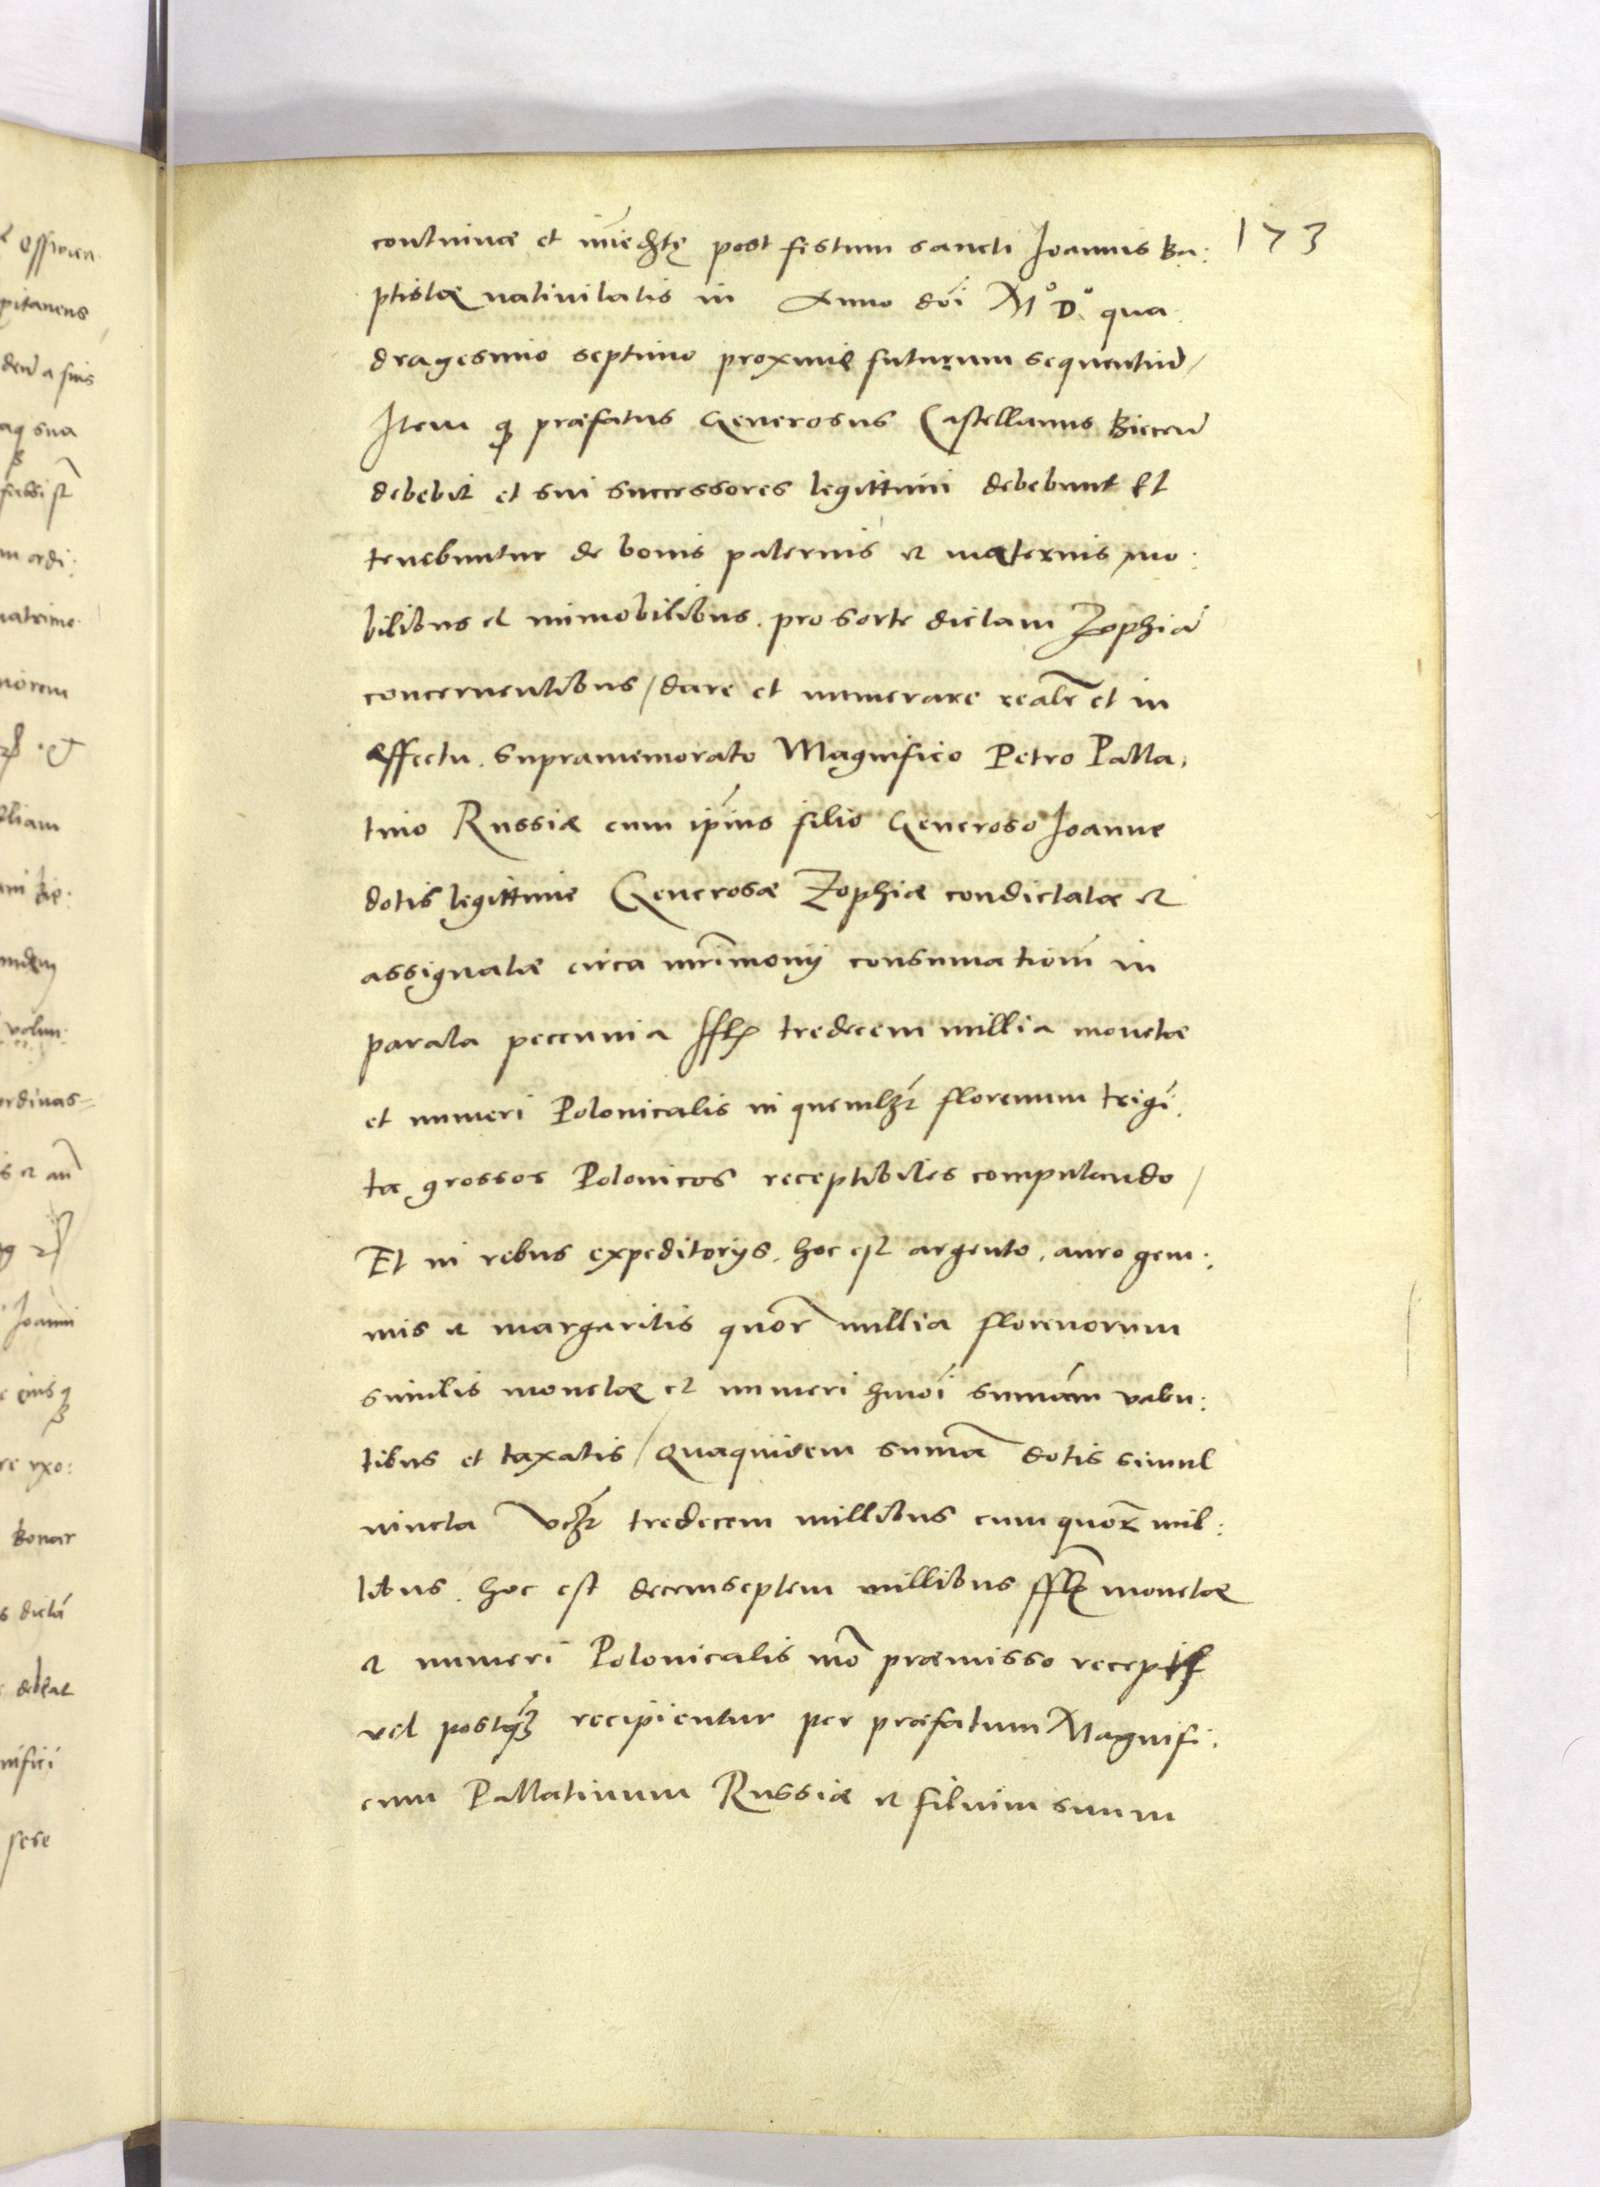 173
continuæ et im̄ediatę post festum sancti Joannis Ba:
ptistæ natiuitatis in Anno dn̄i M° D° qua
dragesimo septimo proxime futurum sequentiu̅/
Item q̨ præfatus Generosus Castellanus Biecen̄
debebit et sui successores legittimi debebunt Et
tenebuntur de bonis paternis et maternis mo:
bilibus et immobilibus. pro sorte dictam Zophiā
concernentibus/ dare et numerare realr̄ et in
effectu. supramemorato Magnifico Petro Palla:
tino Russiæ cum ip̄ius filio Generoso Joanne
dotis legittime Generosæ Zophiæ condictatæ et
assignatæ circa mr̄imonij consumationē in
parata peccunia fl tredecem millia monetæ
et numeri Polonicalis in quemlꝫt florenum trigī:
ta grossos Polonicos receptibiles computando/
Et in rebus expeditorijs. hoc est argento. auro gem:
mis et margaritis quor̄ millia florenorum
similis monetæ et numeri hmōi summam valen:
tibus et taxatis/ Quaquidem sum̄a dotis simul
iuncta vꝫt tredecem millibus cum quor̄ mil:
libus. hoc est decemseptem millibus fl monetæ
et numeri Polonicalis mō præmisso receptis
vel postq̄ꝫ recipientur per præfatum Magnifi:
cum Pallatinum Russiæ et filium suum